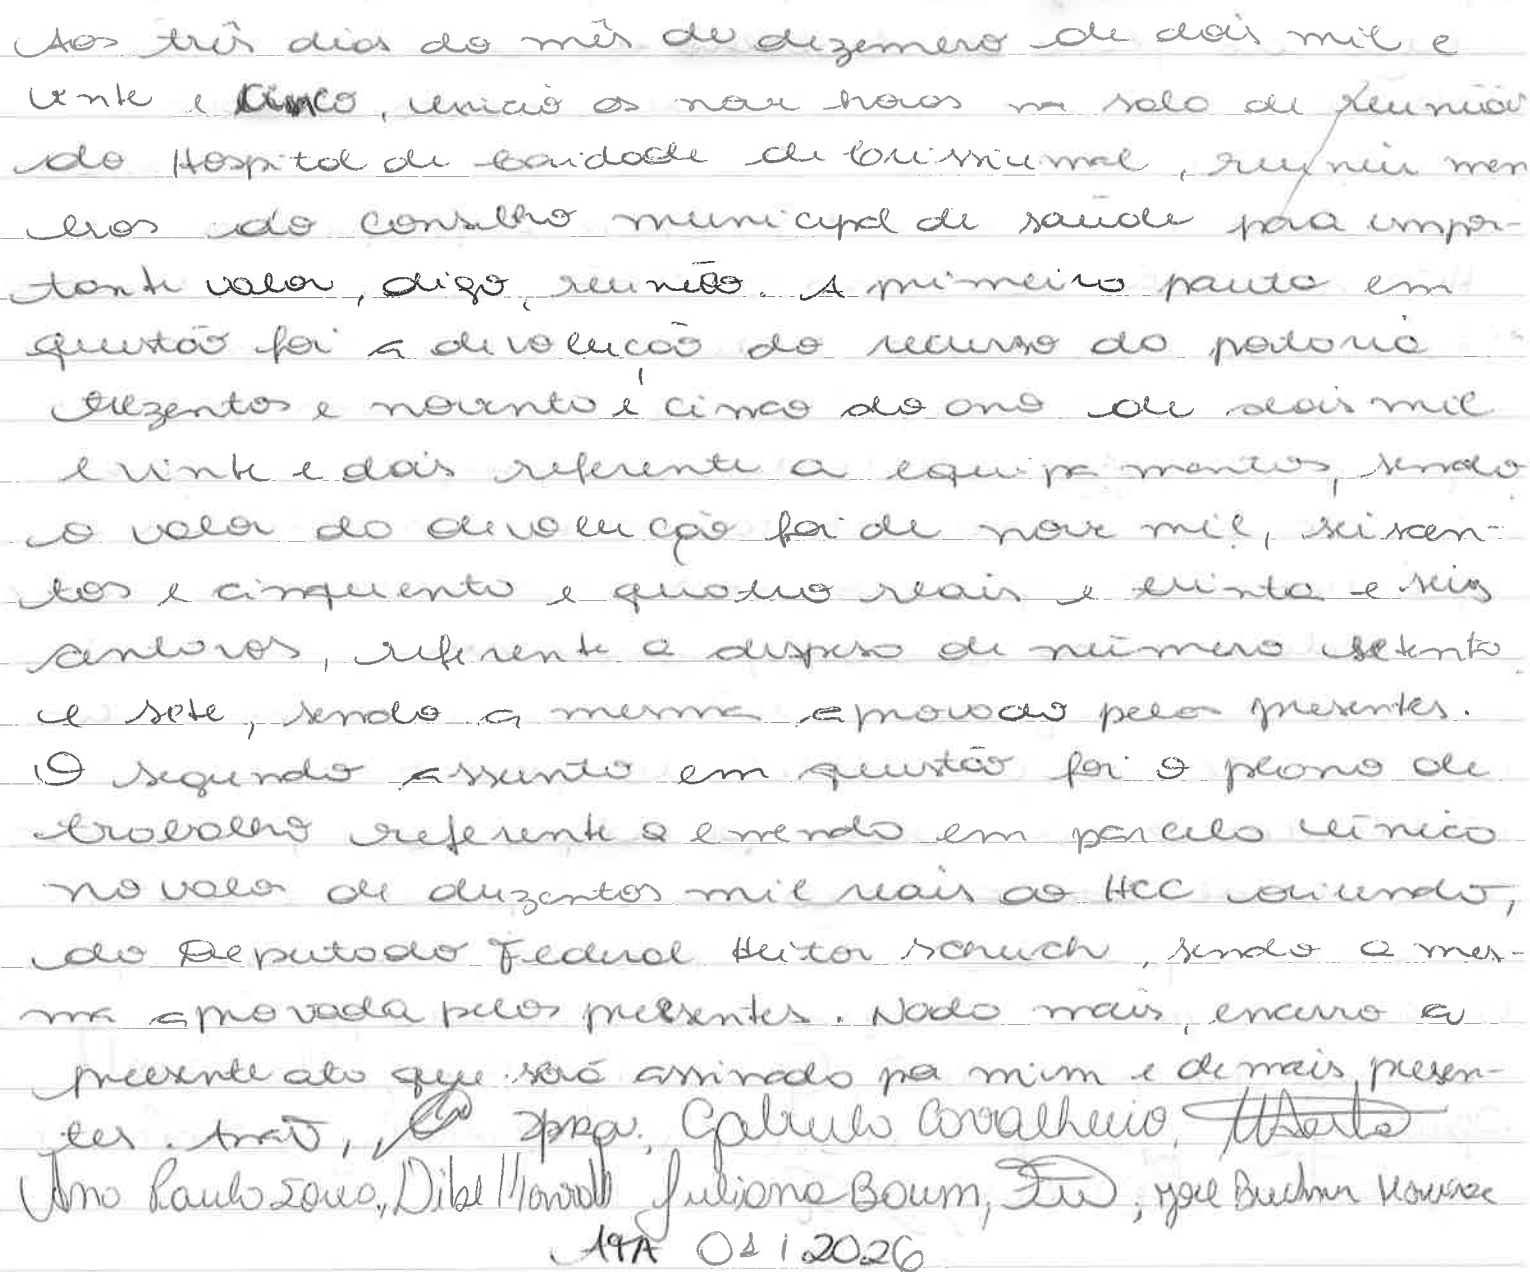 Aos três dias do mês de dezembro de dois mil e
vinte e cinco, iniciô as nove horas na sala de reunião
do Hospital de Caridade de Crissiumal, reuniu mem
bros do Conselho municipal de saúde para impor-
tante valor, digo, reunião. A primeira pauta em
questão foi a devolução do recurso da portaria
trezentos e noventa e cinco do ano de dois mil
e vinte e dois referente a equipamentos, sendo
o valor da devolução foi de nove mil, seiscen-
tos e cinquenta e quatro reais e trinta e seis
centavos, referente a despesa de número setenta
e sete, sendo a mesma aprovada pelos presentes.
O segundo assunto em questão foi o plano de
trabalho referente a emenda em parcela única
no valor de duzentos mil reais ao HCC oriundo,
do Deputado Federal Heitor Schuch, sendo a mes-
ma aprovada pelos presentes. Nada mais, encerro a
presente ata que será assinada por mim e demais presen-
tes. Gabriela Cavalheiro,
Ana Paula Juliana Baum,
01/2026